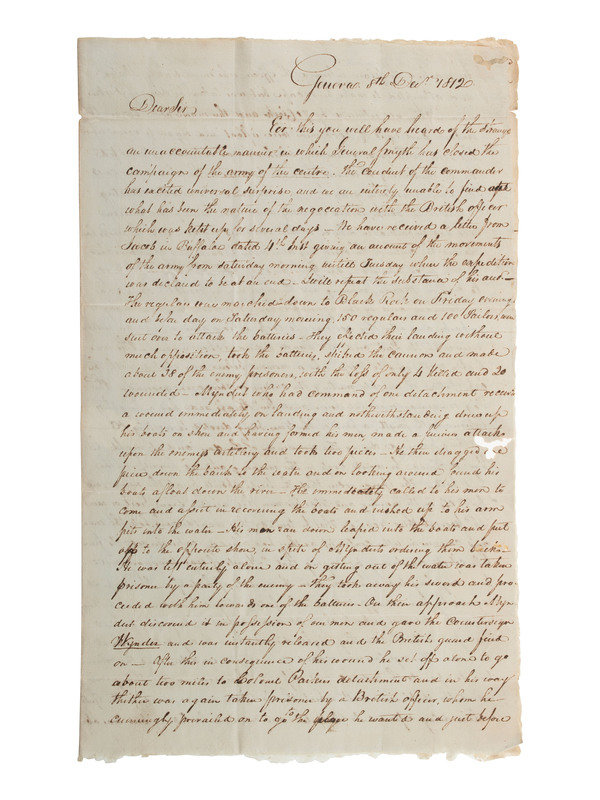 Geneva 8th Decr. 1812
Dear Sir
Eer this you will have heard of the strange
an unaccountable manner in which General Smyth has closed the
campaign of the army of the centre. The conduct of the commander
has excited universal surprise and we are entirely unable to find out
what has been the nature of the negociation with the British officer
which was kept up for several days – We have received a letter from
Jacob in Buffaloe dated 4th inst giving an amount of the movements
of the army from Saturday morning untill Tuesday when the expedition
was declared to be at an end. I will repeat the substance of his
the regulars were marched down to Black Rock on Friday evening
and before day on Saturday morning 150 regulars and 100 Sailors were
sent over to attack the batteries – They effected their landing without
much opposition, took the batteries, spiked the cannon and made
about 38 of the enemy prisoners, with the loss of only 4 killed and 20
wounded – Myndert who had command of one detachment
a wound immediately on landing and nothwithstanding drew up
his boats on shore and having formed his men made a attack
upon the enemys artillery and took two pieces – He then dragged
piece down the bank to the water and on looking around found his
boats afloat down the river – He immediately called to his men to
come and assist in recovering the boats and rushed up to his arm
pits into the water – His men ran down leaped into the boats and put
off to the opposite shore in spite of Mynderts ordering them back –
He was left entirely alone and on getting out of the water was taken
prisoner by a party of the enemy – They took away his sword and pro
ceeded with him towards one of the batteries – On their approach Myn
dert discovered it in possession of our men and gave the countersign
Wynder and was instantly released and the British guard fired
on – After this in consequence of his wound he set off alone to go
about two miles to Colonel detachment and in his way
thither was again taken prisoner by a British officer, whom he
cunningly on to go to the place he wanted and just before